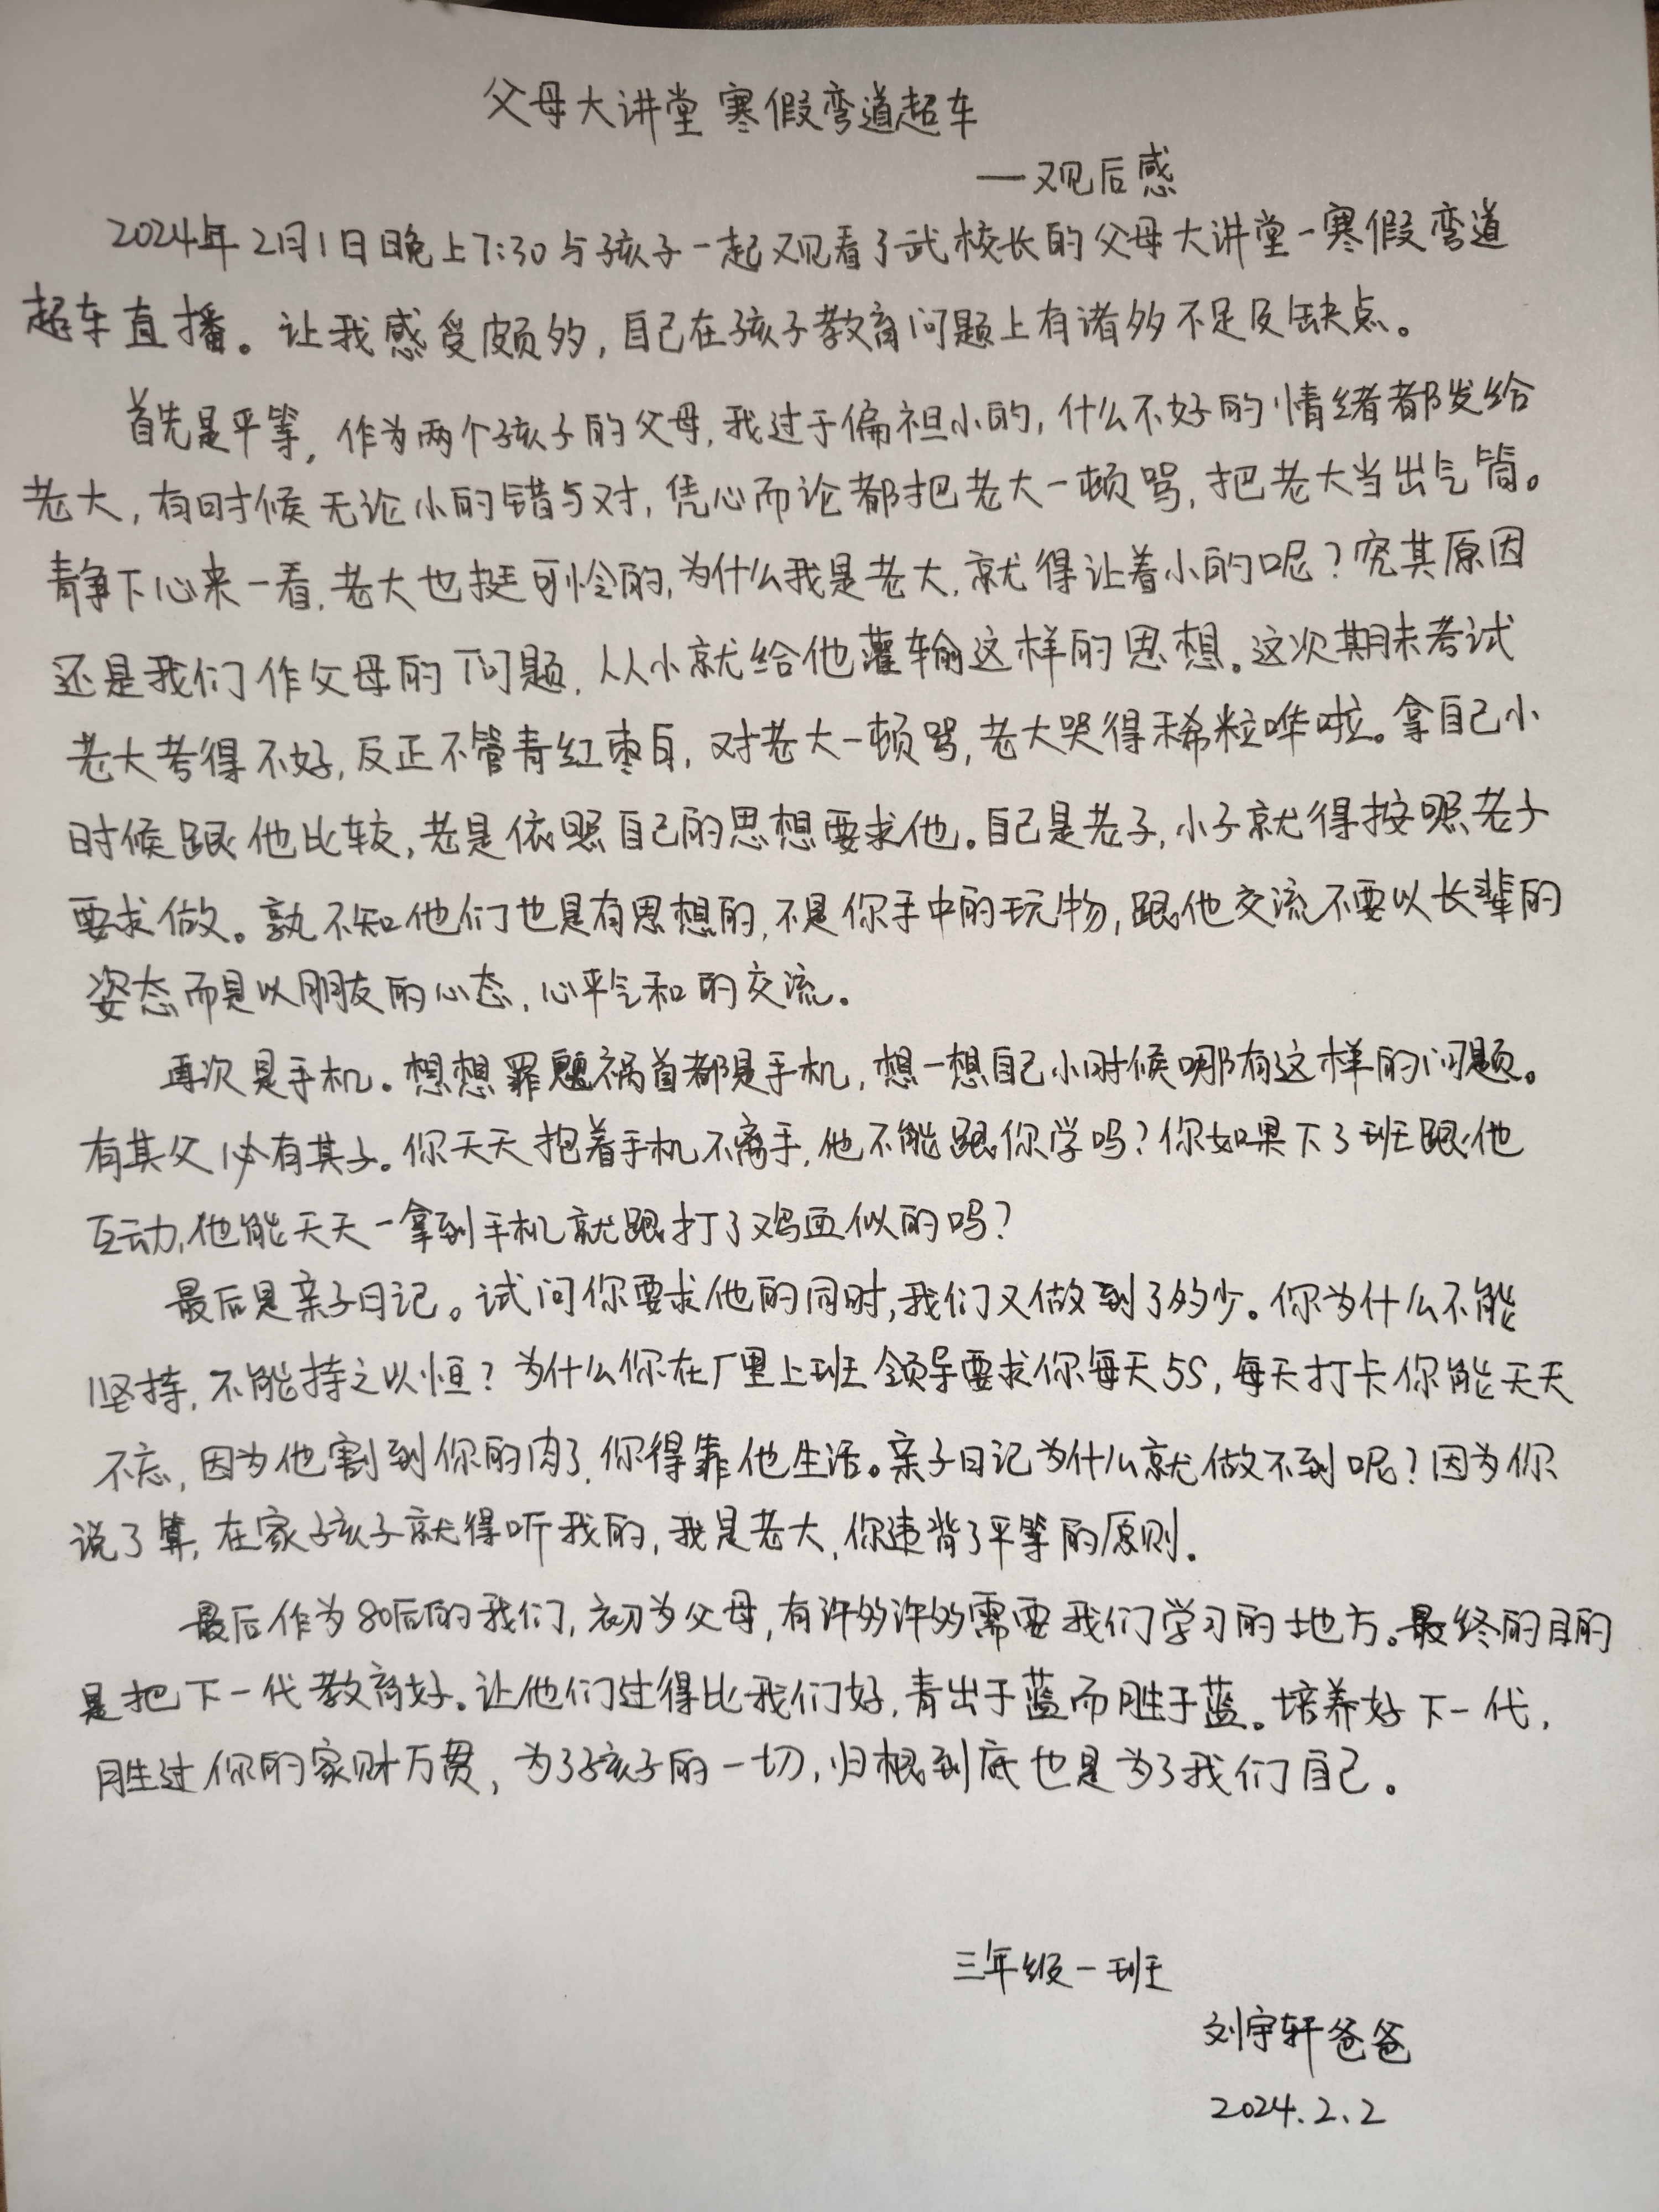 父母大讲堂 寒假弯道超车
—观后感
2024年2月1日晚上7:30与孩子一起观看了武校长的父母大讲堂-寒假弯道
超车直播。让我感受颇多,自己在孩子教育问题上有诸多不足及缺点。
首先是平等,作为两个孩子的父母,我过于偏袒小的,什么不好的情绪都发给
老大,有时候无论小的错与对,凭心而论都把老大一顿骂,把老大当出气筒。
静下心来一看,老大也挺可怜的,为什么我是老大,就得让着小的呢?究其原因
还是我们作父母的问题,从小就给他灌输这样的思想。这次期末考试
老大考得不好,反正不管青红枣白,对老大一顿骂,老大哭得稀粒哗啦。拿自己小
时候跟他比较,老是依照自己的思想要求他。自己是老子,小子就得按照老子
要求做。孰不知他们也是有思想的,不是你手中的玩物,跟他交流不要以长辈的
姿态而是以朋友的心态,心平气和的交流。
再次是手机。想想罪魁祸首都是手机,想一想自己小时候哪有这样的问题。
有其父必有其子。你天天抱着手机不离手,他不能跟你学吗?你如果下了班跟他
互动,他能天天一拿到手机就跟打了鸡血似的吗?
最后是亲子日记。试问你要求他的同时,我们又做到了多少。你为什么不能
坚持,不能持之以恒?为什么你在厂里上班领导要求你每天5S,每天打卡你能天天
不忘,因为他割到你的肉了,你得靠他生活。亲子日记为什么就做不到呢?因为你
说了算,在家孩子就得听我的,我是老大,你违背了平等的原则。
最后作为80后的我们,初为父母,有许多许多需要我们学习的地方。最终的目的
是把下一代教育好。让他们过得比我们好,青出于蓝而胜于蓝。培养好下一代,
胜过你的家财万贯,为了孩子的一切,归根到底也是为了我们自己。
三年级一班
刘宇轩爸爸
2024.2.2